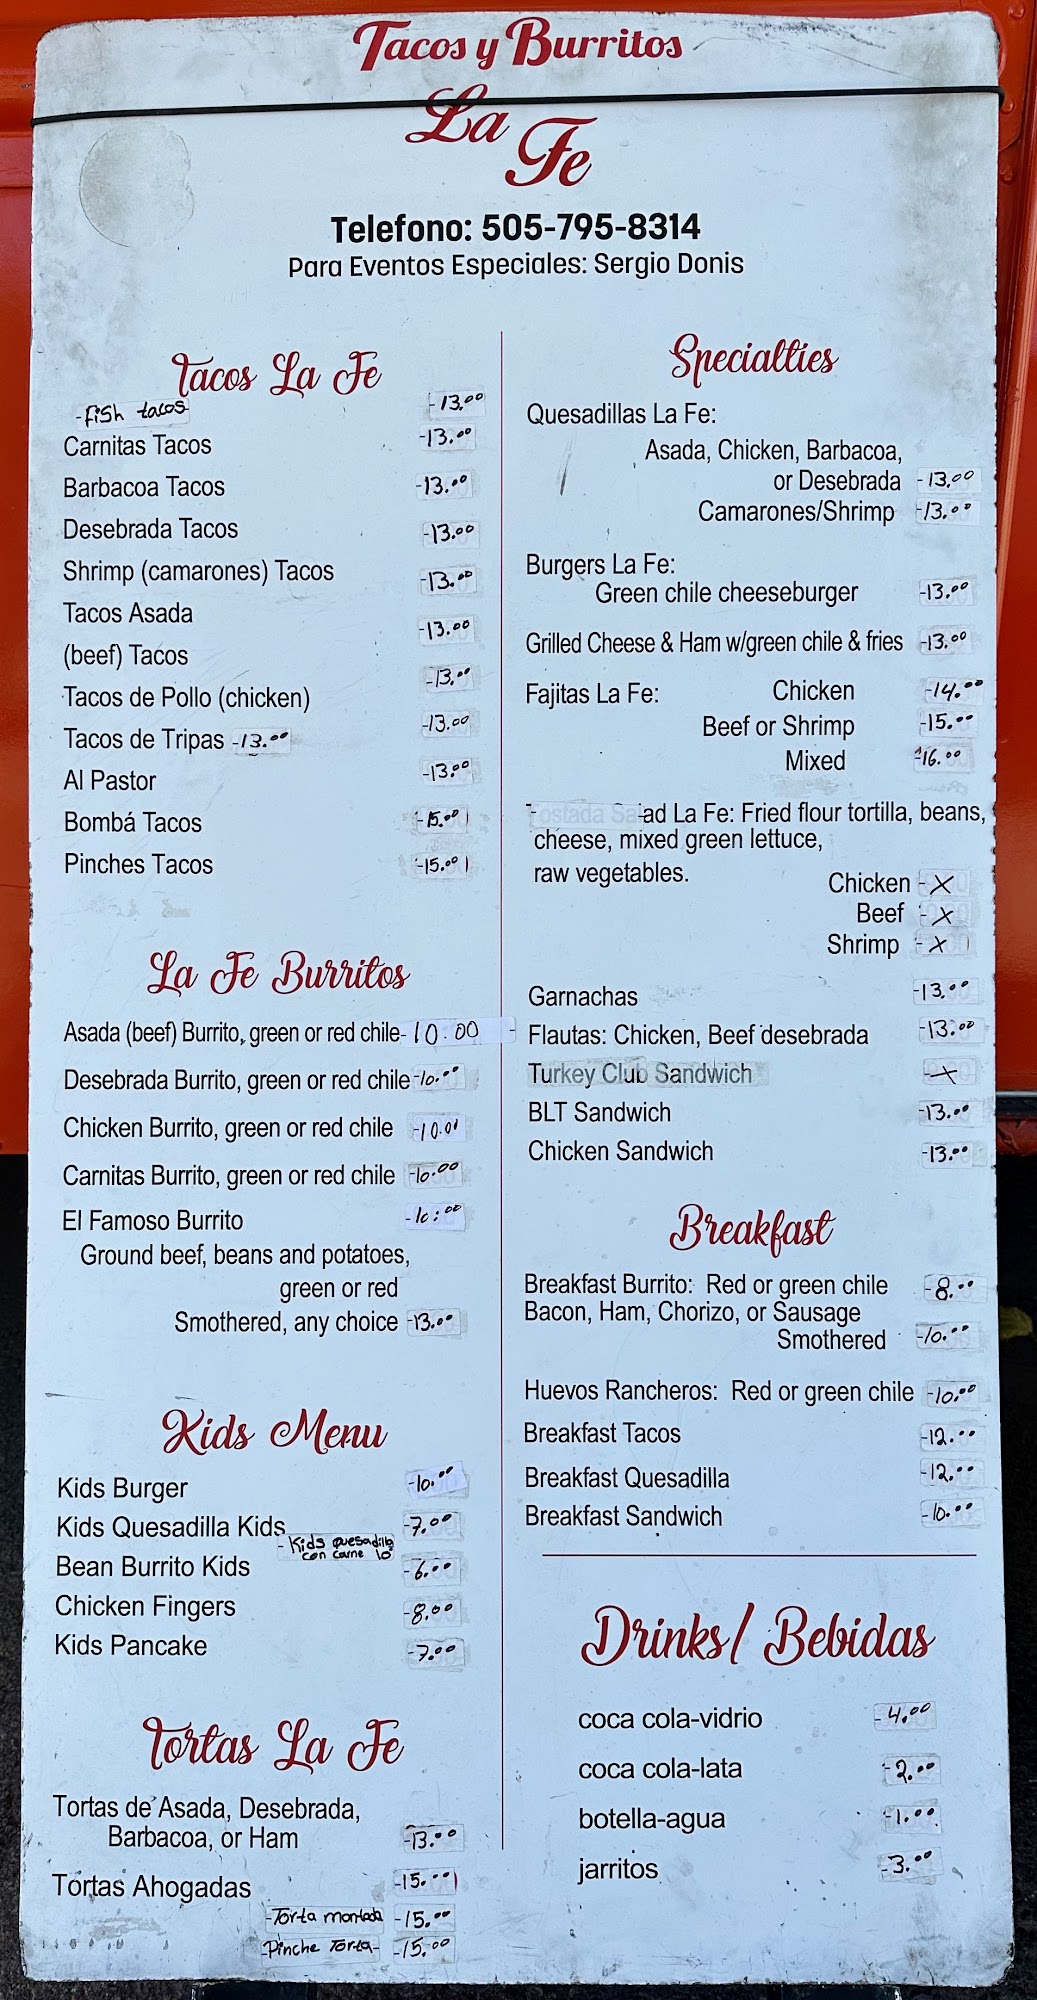 Tacos y Burritos
La Fe
Telefono: 505-795-8314
Para Eventos Especiales: Sergio Donis
Tacos La Fe
-fish tacos -13.00
Carnitas Tacos -13.00
Barbacoa Tacos -13.00
Desebrada Tacos -13.00
Shrimp (camarones) Tacos -13.00
Tacos Asada -13.00
(beef) Tacos -13.00
Tacos de Pollo (chicken) -13.00
Tacos de Tripas -13.00
Al Pastor -13.00
Bombá Tacos -15.00
Pinches Tacos -15.00
La Fe Burritos
Asada (beef) Burrito, green or red chile -10.00
Desebrada Burrito, green or red chile -10.00
Chicken Burrito, green or red chile -10.00
Carnitas Burrito, green or red chile -10.00
El Famoso Burrito -10.00
Ground beef, beans and potatoes,
green or red
Smothered, any choice -13.00
Kids Menu
Kids Burger -10.00
Kids Quesadilla Kids -7.00
-Kids quesadilla
con carne 10
Bean Burrito Kids -6.00
Chicken Fingers -8.00
Kids Pancake -7.00
Tortas La Fe
Tortas de Asada, Desebrada,
Barbacoa, or Ham -13.00
Tortas Ahogadas -15.00
-Torta montada -15.00
-Pinche Torta- -15.00
Specialties
Quesadillas La Fe:
Asada, Chicken, Barbacoa,
or Desebrada -13.00
Camarones/Shrimp -13.00
Burgers La Fe:
Green chile cheeseburger -13.00
Grilled Cheese & Ham w/green chile & fries -13.00
Fajitas La Fe: Chicken -14.00
Beef or Shrimp -15.00
Mixed -16.00
Tostada Salad La Fe: Fried flour tortilla, beans,
cheese, mixed green lettuce,
raw vegetables.
Chicken -X
Beef -X
Shrimp -X
Garnachas -13.00
Flautas: Chicken, Beef desebrada -13.00
Turkey Club Sandwich -X
BLT Sandwich -13.00
Chicken Sandwich -13.00
Breakfast
Breakfast Burrito: Red or green chile -8.00
Bacon, Ham, Chorizo, or Sausage
Smothered -10.00
Huevos Rancheros: Red or green chile -10.00
Breakfast Tacos -12.00
Breakfast Quesadilla -12.00
Breakfast Sandwich -10.00
Drinks/ Bebidas
coca cola-vidrio -4.00
coca cola-lata -2.00
botella-agua -1.00
jarritos -3.00